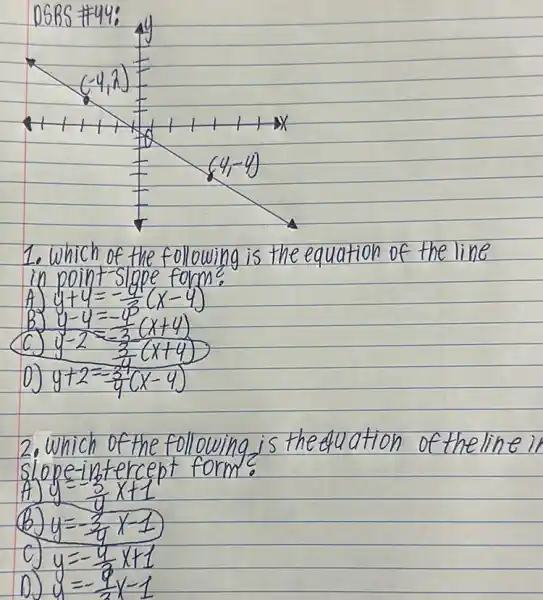 DSRS #44:
y
(-4,2)
x
0
(4,-4)
1. Which of the following is the equation of the line
in point-slope form?
A) y+4=-4/3(x-4)
B) y-4=-4/3(x+4)
C) y-2=-3/4(x+4)
D) y+2=-3/4(x-4)
2. Which of the following is the equation of the line in
slope-intercept form?
A) y=-3/4x+1
B) y=-3/4x-1
C) y=-4/3x+1
D) y=-4/3x-1